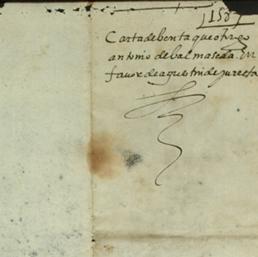 1587
Carta de benta que otorgo
antonio de balmaseda. En
fauor de agustin de